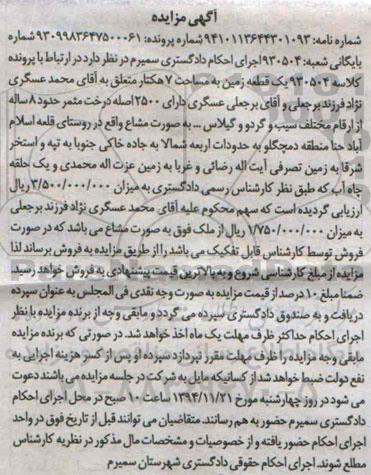 آگهی مزایده
شماره نامه: ۹۴۱۰۱۱۳۶۴۴۳۰۱۰۹۳ شماره پرونده: ۹۳۰۹۹۸۳۶۴۷۵۰۰۰۶۱ شماره
بایگانی شعبه: ۹۳۰۵۰۴ اجرای احکام دادگستری سمیرم در نظر دارد در ارتباط با پرونده
کلاسه ۹۳۰۵۰۴ یک قطعه زمین به مساحت ۷ هکتار متعلق به آقای محمد عسگری
نژاد فرزند برجعلی و آقای برجعلی عسگری دارای ۲۵۰۰ اصله درخت مثمر حدود ۸ ساله
از ارقام مختلف سیب و گردو و گیلاس ... به صورت مشاع واقع در روستای قلعه اسلام
آباد حنا منطقه دمچگلو به حدودات اربعه شمالا به جاده خاکی جنوبا به تپه و استخر
شرقا به زمین تصرفی آیت اله رضائی و غربا به زمین عزت اله محمدی و یک حلقه
چاه آب که طبق نظر کارشناس رسمی دادگستری به میزان ۳/۵۰۰/۰۰۰/۰۰۰ ریال
ارزیابی گردیده است که سهم محکوم علیه آقای محمد عسگری نژاد فرزند برجعلی
به میزان ۱/۷۵۰/۰۰۰/۰۰۰ ریال از ملک فوق به صورت مشاع می باشد که در صورت
فروش توسط کارشناس قابل تفکیک می باشد را از طریق مزایده به فروش برساند لذا
مزایده از مبلغ کارشناسی شروع و به بالاترین قیمت پیشنهادی به فروش خواهد رسید
ضمنا مبلغ ۱۰ درصد از قیمت مزایده به صورت وجه نقدی فی المجلس به عنوان سپرده
دریافت و به صندوق دادگستری سپرده می گردد و مابقی وجه از برنده مزایده با نظر
اجرای احکام حداکثر ظرف مهلت یک ماه اخذ خواهد شد. در صورتی که برنده مزایده
مابقی وجه مزایده را ظرف مهلت مقرر نپردازد سپرده او پس از کسر هزینه اجرایی به
نفع دولت ضبط خواهد شد از کسانیکه مایل به شرکت در جلسه مزایده می باشند دعوت
می شود در روز چهارشنبه مورخ ۱۳۹۴/۱۱/۲۱ ساعت ۱۰ صبح در محل اجرای احکام
دادگستری سمیرم حضور به هم رسانند. متقاضیان می توانند قبل از تاریخ فوق در واحد
اجرای احکام حضور یافته و از خصوصیات و مشخصات مال مذکور در نظریه کارشناس
مطلع شوند. اجرای احکام حقوقی دادگستری شهرستان سمیرم